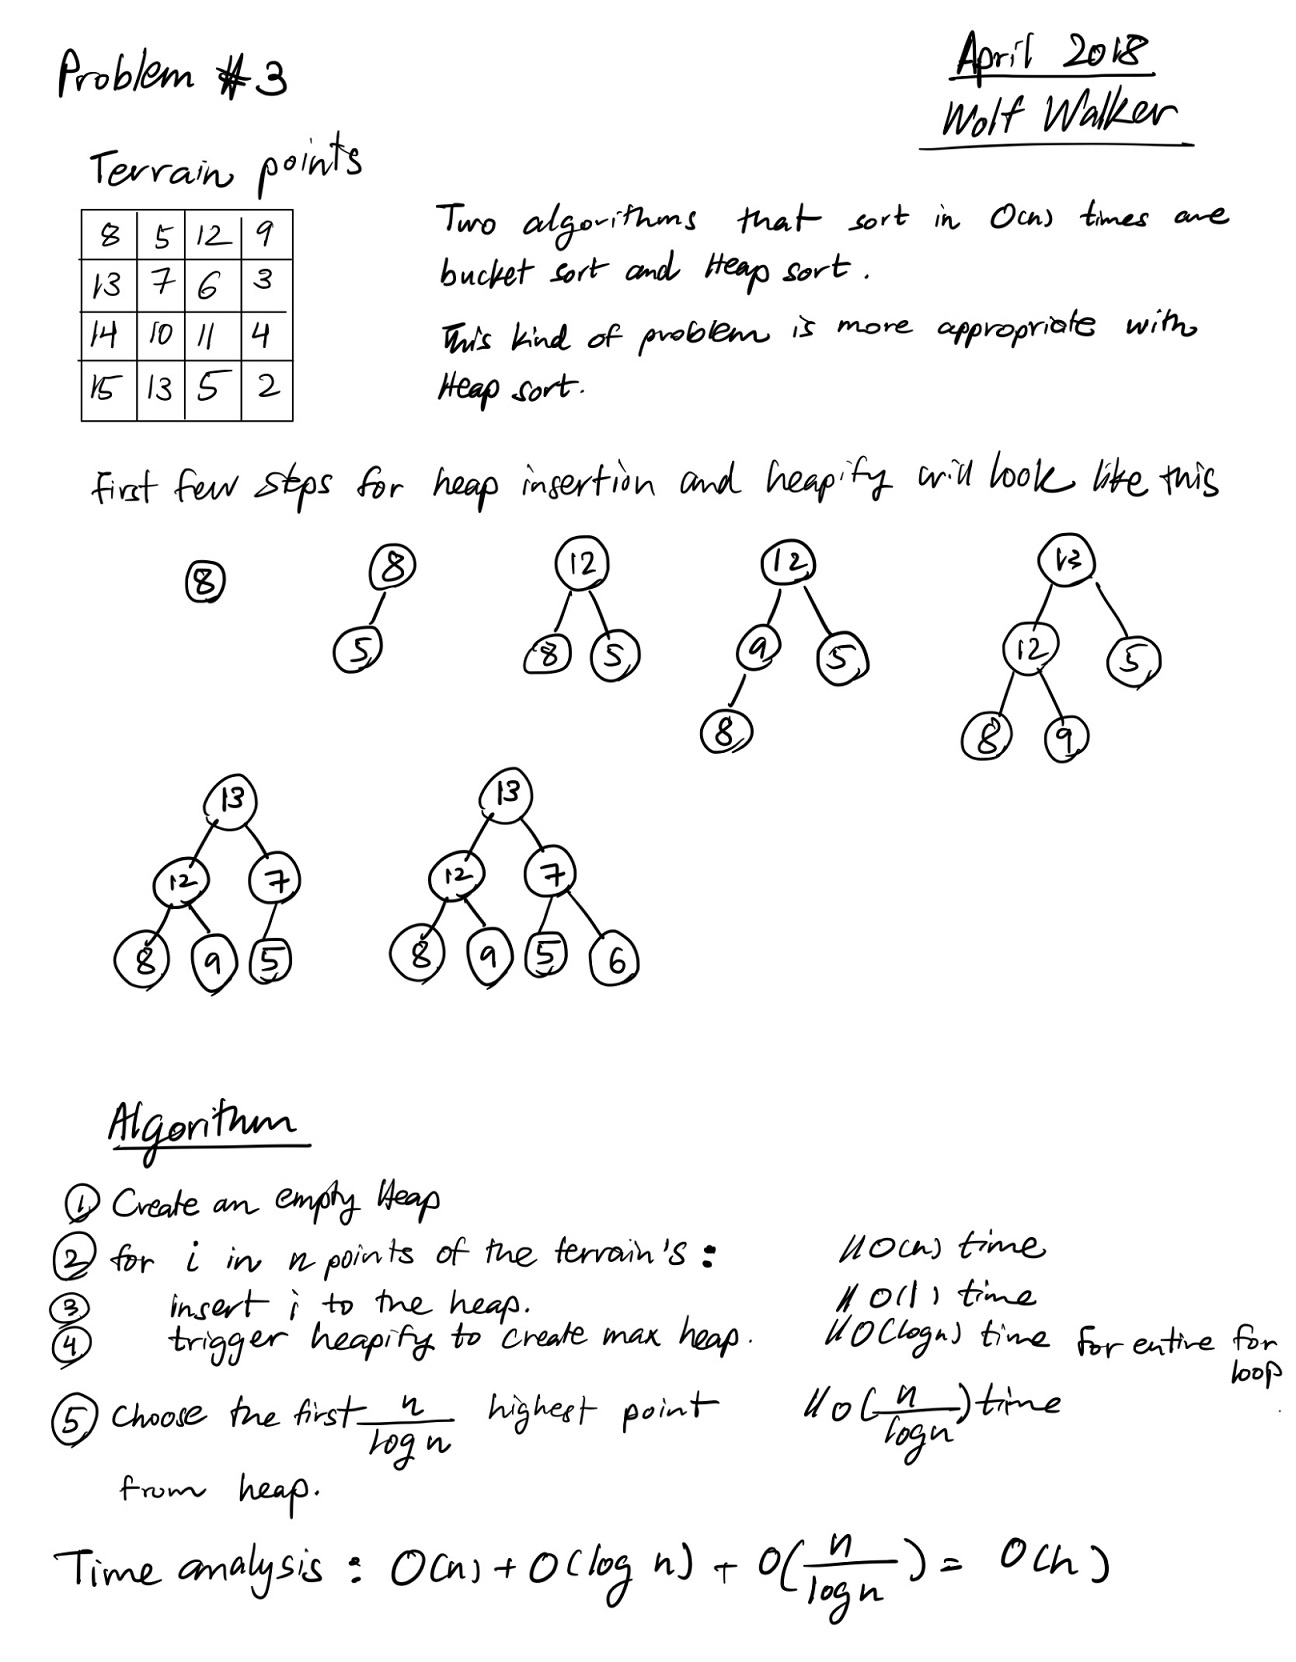 Problem #3
April 2018
Wolf Walker
Terrain points
8 5 12 9
13 7 6 3
14 10 11 4
15 13 5 2
Two algorithms that sort in O(n) times are
bucket sort and Heap sort.
This kind of problem is more appropriate with
Heap sort.
First few steps for heap insertion and heapify will look like this
8
8
5
12
8 5
12
9 5
8
13
12 5
8 9
13
12 7
8 9 5
13
12 7
8 9 5 6
Algorithm
① Create an empty Heap
② for i in n points of the terrain's: // O(n) time
③ insert i to the heap. // O(1) time
④ trigger heapify to create max heap. // O(logn) time for entire for loop
⑤ Choose the first n/logn highest point // O(n/logn) time
from heap.
Time analysis: O(n) + O(log n) + O(n/logn) = O(n)